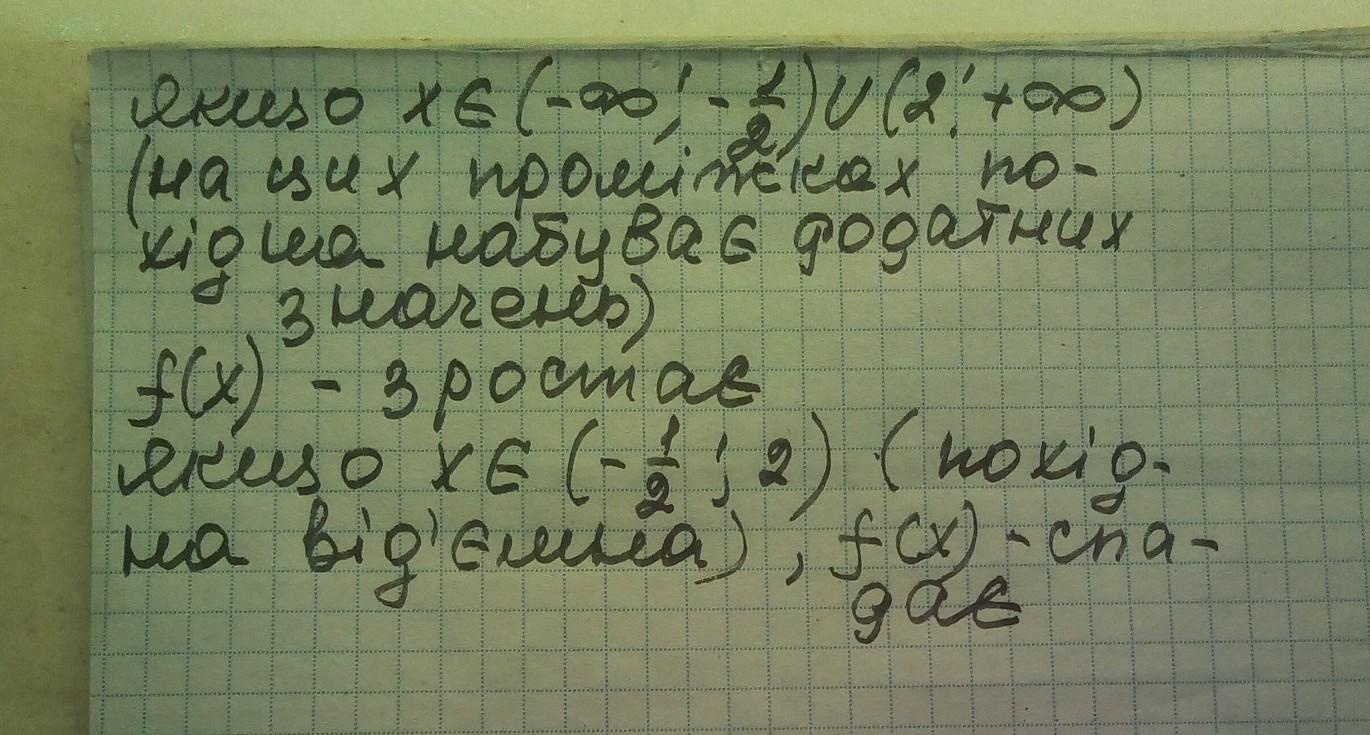 якщо x∈(-∞; -1/2)∪(2; +∞)
(на цих проміжках по-
хідна набуває додатних
значень)
f(x) - зростає
якщо x∈(-1/2; 2) (похід-
на від'ємна), f(x) - спа-
дає